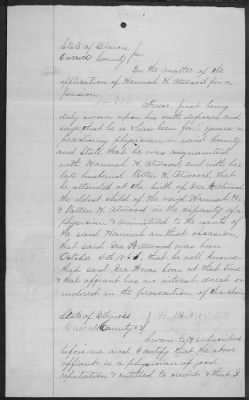 State of Illinois
Carroll County
In the matter of the
application of Hannah H. Atwood for a
pension.
Freese, first being
duly sworn upon his oath deposes and
says that he is & has been for years a
practicing physician in said County
and State, that he was acquainted
with Hannah H. Atwood and with her
late husband H. Atwood, that
he attended at the birth of Ira Atwood
the oldest child of the said Hannah H.
& H. Atwood in the capacity of a
physician & administered to the wants of
the said Hannah on that occasion,
that said Ira H Atwood was born
October 4th 1861, that he well knows
that said Ira H was born at that time
& that affiant has no interest direct or
indirect in the prosecution of the claim
State of Illinois
Carroll County
Sworn to & subscribed
before me and I certify that the above
affiant is a physician of good
reputation & entitled to credit & that I